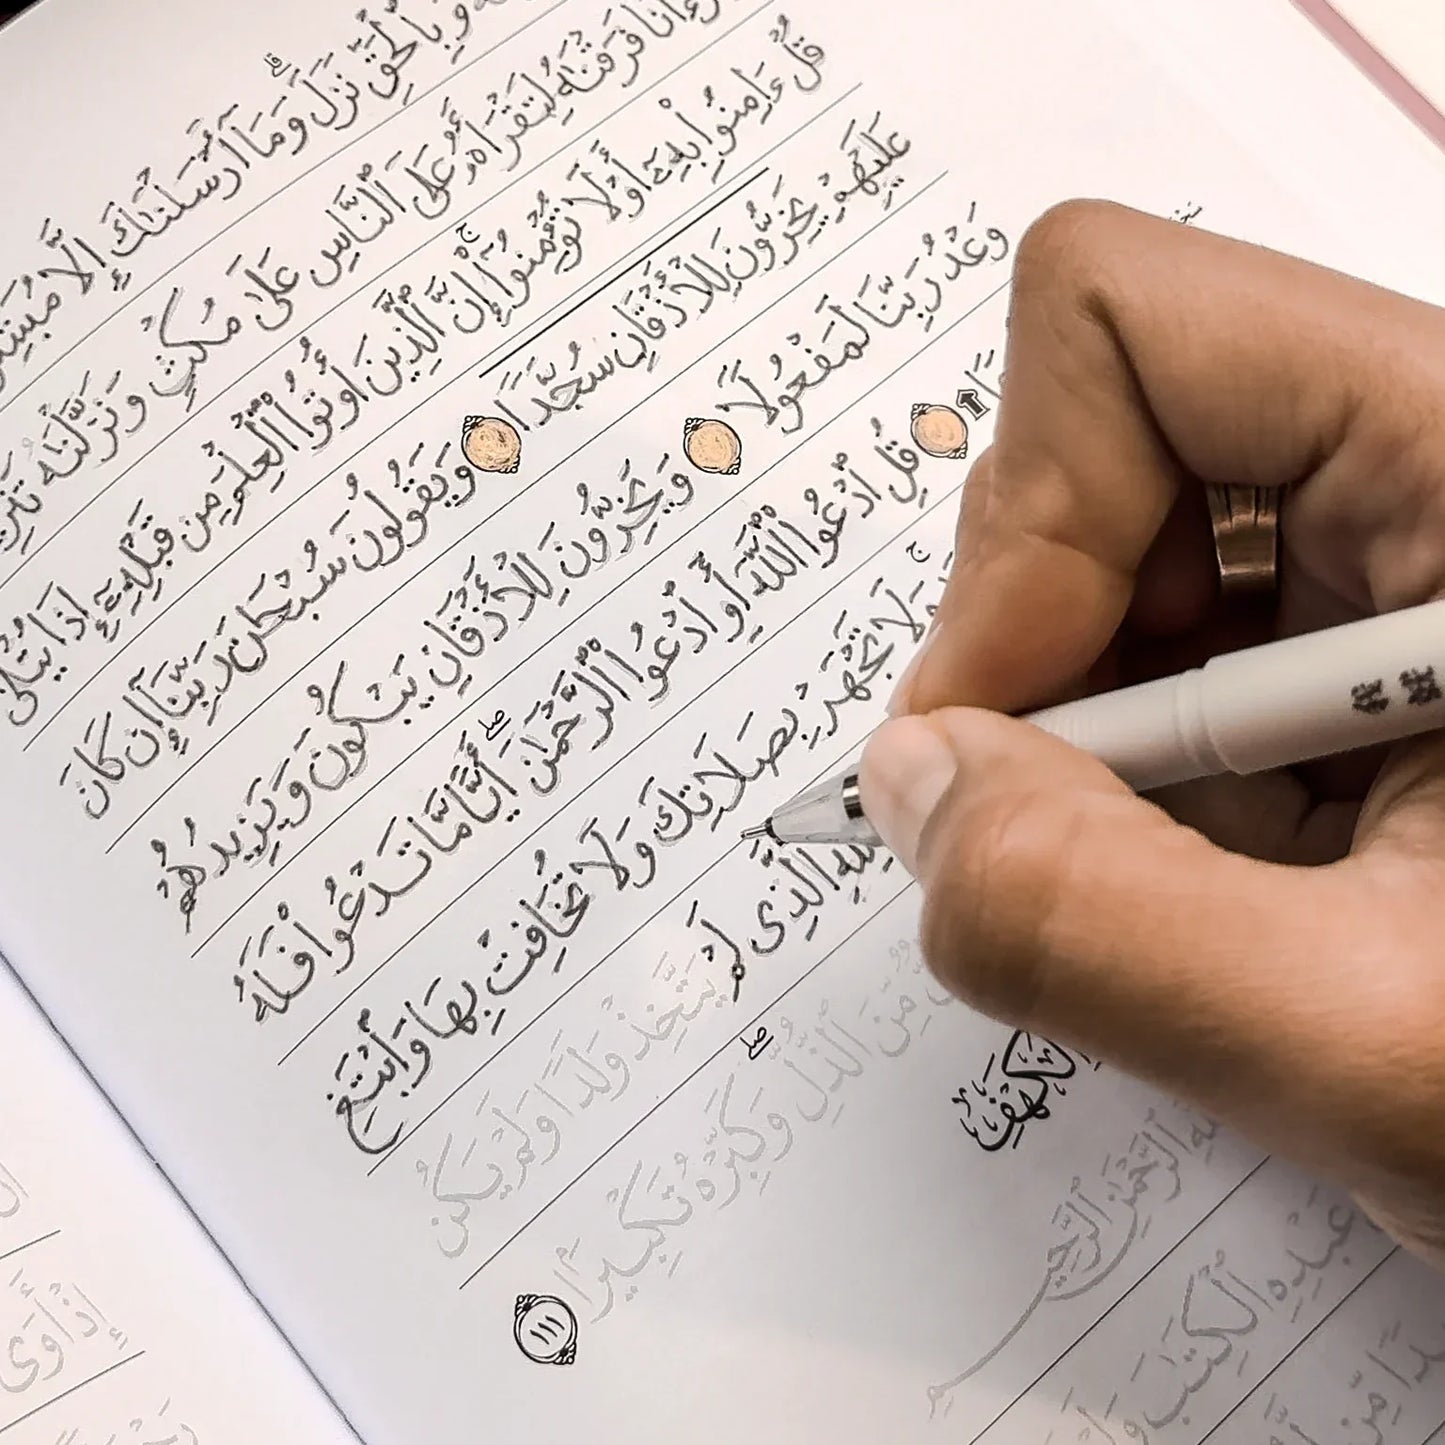 وَبِٱلْحَقِّ نَزَلَ ۗ وَمَآ أَرْسَلْنَٰكَ إِلَّا
فَرَقْنَٰهُ لِتَقْرَأَهُۥ عَلَى ٱلنَّاسِ عَلَىٰ مُكْثٍ وَنَزَّلْنَٰهُ
قُلْ ءَامِنُوا۟ بِهِۦٓ أَوْ لَا تُؤْمِنُوٓا۟ ۚ إِنَّ ٱلَّذِينَ أُوتُوا۟ ٱلْعِلْمَ مِن قَبْلِهِۦٓ إِذَا يُتْلَىٰ
عَلَيْهِمْ يَخِرُّونَ لِلْأَذْقَانِ سُجَّدًا وَيَقُولُونَ سُبْحَٰنَ رَبِّنَآ إِن كَانَ
وَعْدُ رَبِّنَا لَمَفْعُولًا وَيَخِرُّونَ لِلْأَذْقَانِ يَبْكُونَ وَيَزِيدُهُمْ
قُلِ ٱدْعُوا۟ ٱللَّهَ أَوِ ٱدْعُوا۟ ٱلرَّحْمَٰنَ ۖ أَيًّا مَّا تَدْعُوا۟ فَلَهُ
ۚ وَلَا تَجْهَرْ بِصَلَاتِكَ وَلَا تُخَافِتْ بِهَا وَٱبْتَغِ
ٱلَّذِى لَمْ يَتَّخِذْ وَلَدًا وَلَمْ يَكُن
مِّنَ ٱلذُّلِّ ۖ وَكَبِّرْهُ تَكْبِيرًۢا ١١١
ٱلْكَهْفِ
ٱلرَّحْمَٰنِ ٱلرَّحِيمِ
عَبْدِهِ ٱلْكِتَٰبَ
مِّن
إِذْ أَوَى